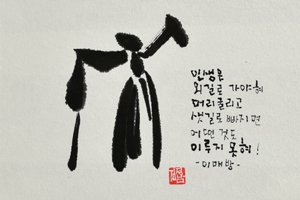 인생은
외길로 가야혀
머리굴리고
샛길로 빠지면
어떤 것도
이루지 못혀!
-이매방-